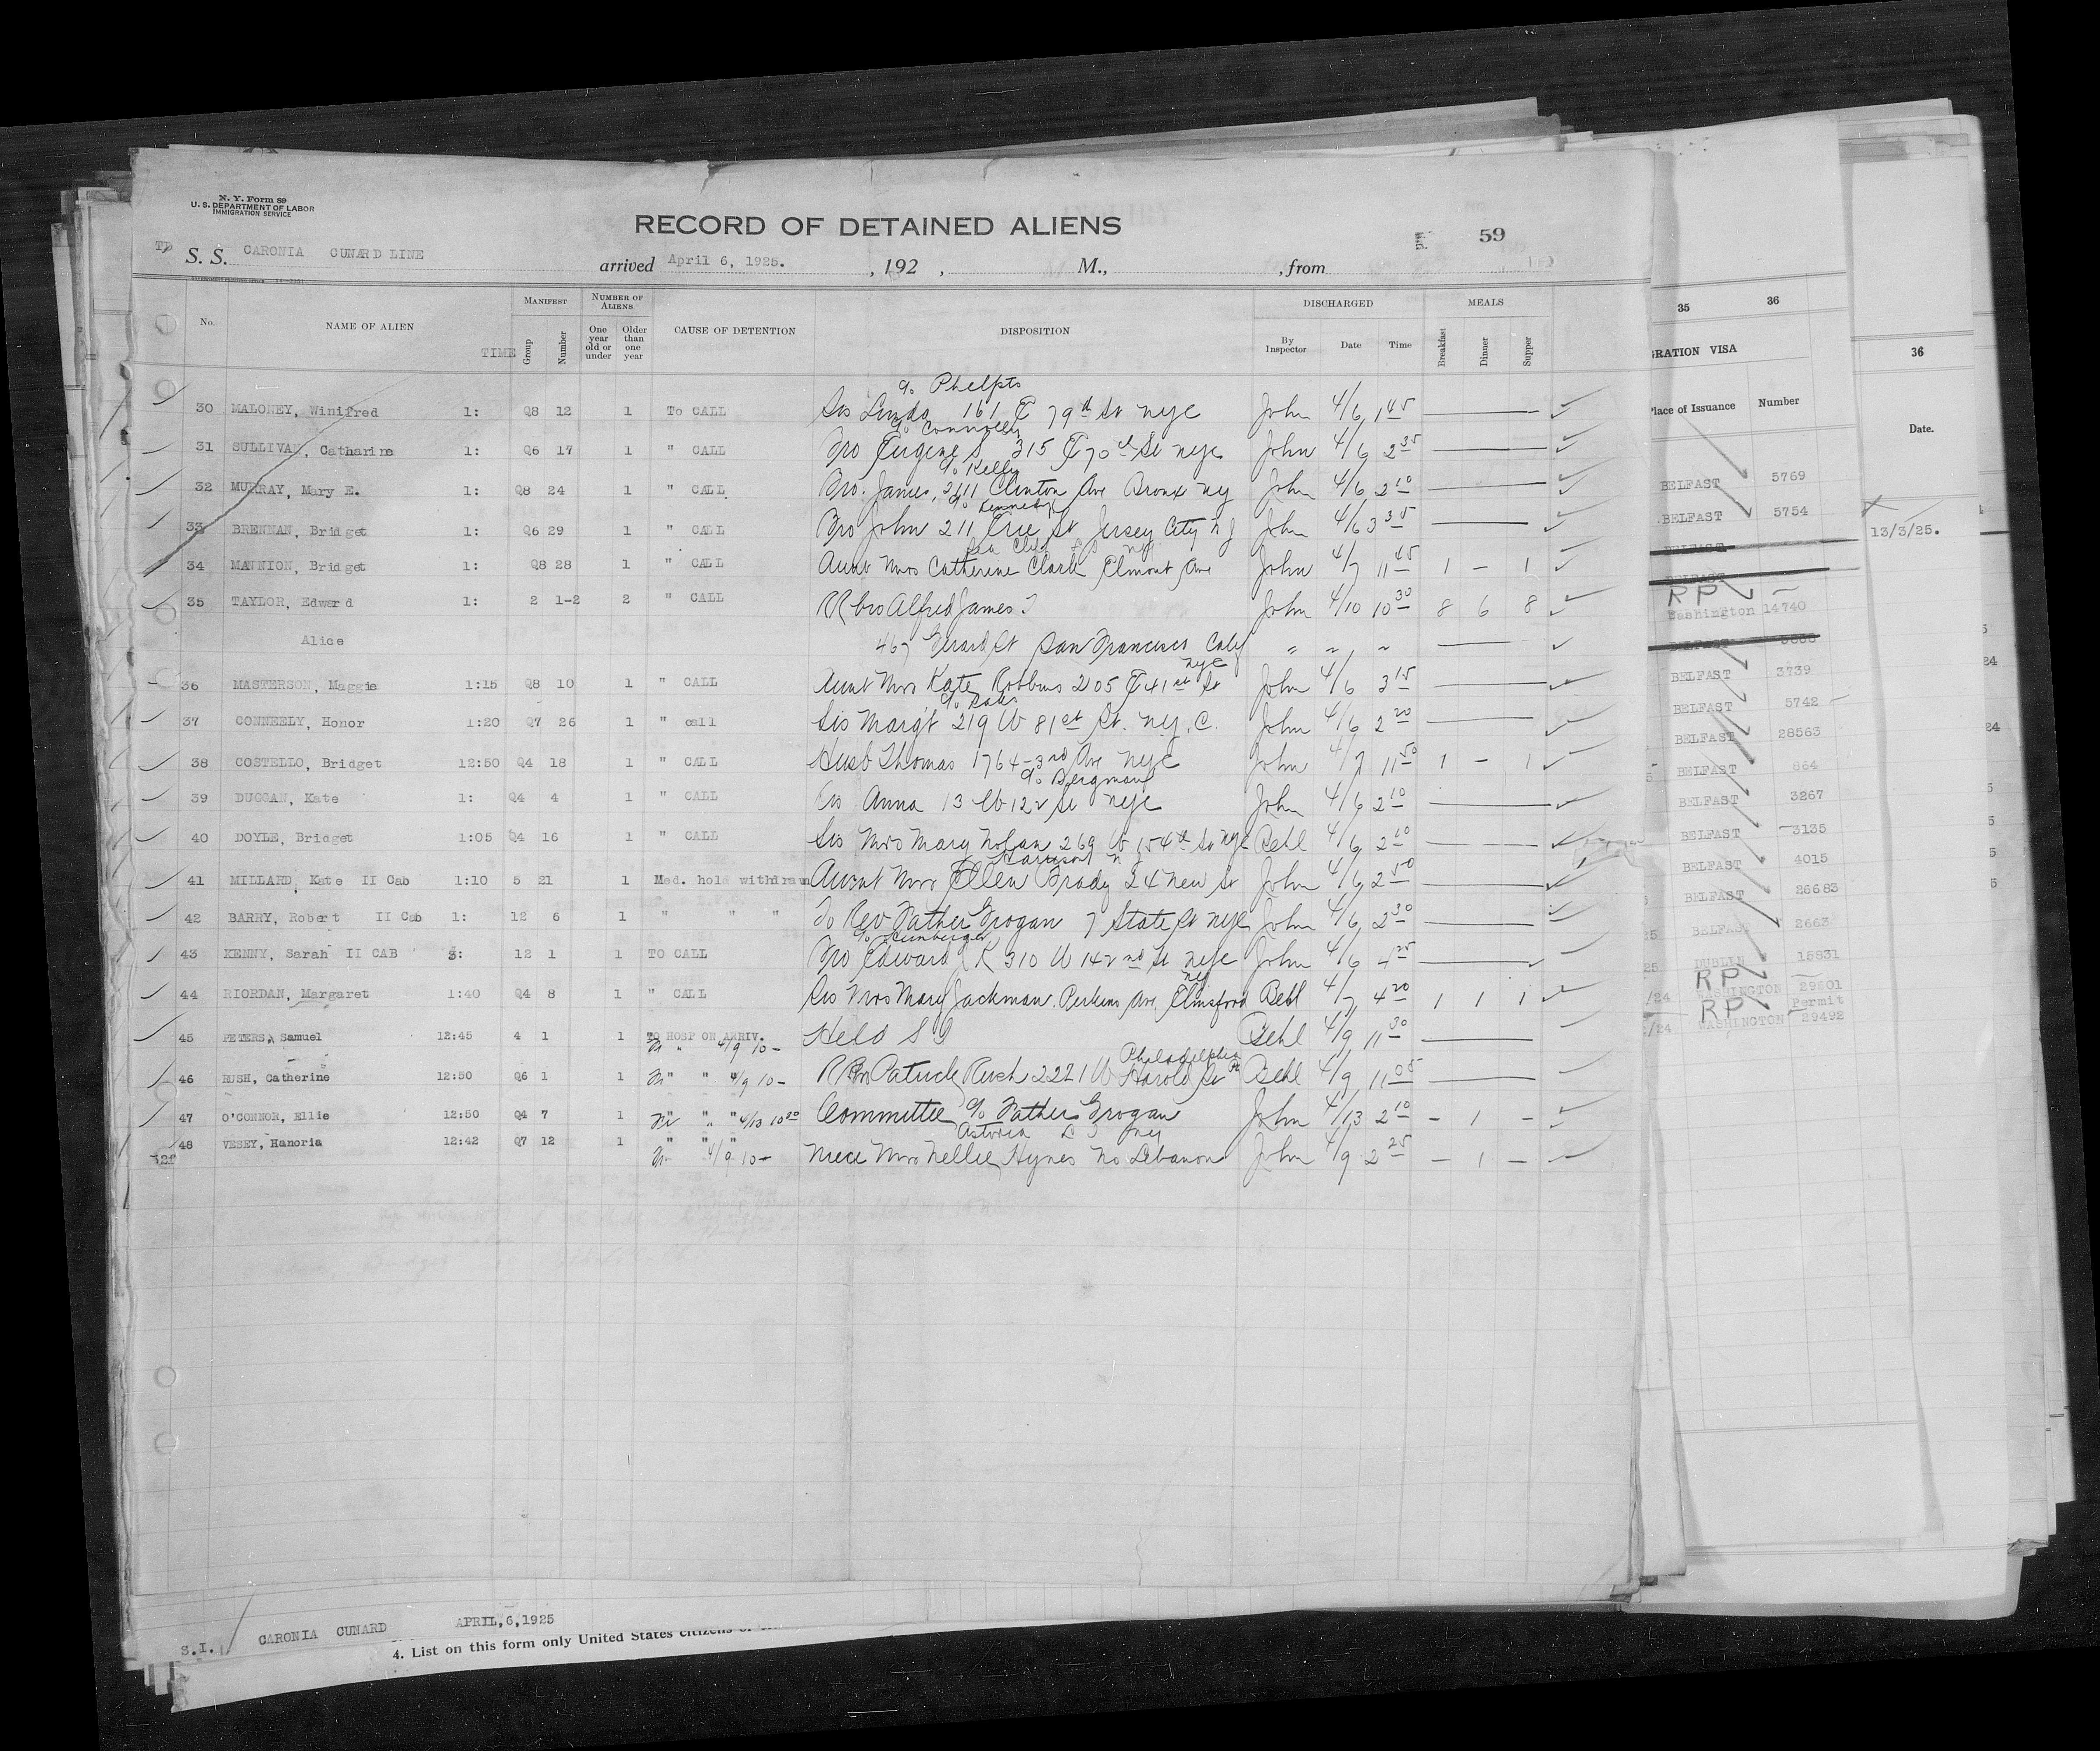 N. Y. Form 89
U. S. DEPARTMENT OF LABOR
IMMIGRATION SERVICE
RECORD OF DETAINED ALIENS
59
TP S. S. CARONIA CUNARD LINE arrived April 6, 1925. , 192 , M., , from
No. NAME OF ALIEN TIME MANIFEST Group Number NUMBER OF ALIENS One year old or under Older than one year CAUSE OF DETENTION DISPOSITION DISCHARGED By Inspector Date Time MEALS Breakfast Dinner Supper
c/o Phelps
30 MALONEY, Winifred 1: Q8 12 1 To CALL Sis Linda 161 E 79th St NYC John 4/6 1 45
c/o Connolly
31 SULLIVAN, Catharine 1: Q6 17 1 " CALL Bro Eugene S 315 E 70th St NYC John 4/6 2 35
c/o Kelly
32 MURRAY, Mary E. 1: Q8 24 1 " CALL Bro. James, 2111 Clinton Ave Bronx NY John 4/6 2 10
c/o Kennedy
33 BRENNAN, Bridget 1: Q6 29 1 " CALL Bro John 211 Erie St Jersey City NJ John 4/6 3 35
Sea Cliff NY
34 MANNION, Bridget 1: Q8 28 1 " CALL Aunt Mrs Catherine Clark Elmont Ave John 4/7 11 45 1 – 1
35 TAYLOR, Edward 1: 2 1-2 2 " CALL RR bro Alfred James T John 4/10 10 30 8 6 8
Alice 467 Gerard St San Francisco Calif " " "
NYC
36 MASTERSON, Maggie 1:15 Q8 10 1 " CALL Aunt Mrs Kate Robbins 205 E 41st St John 4/6 3 15
37 CONNEELY, Honor 1:20 Q7 26 1 " call Sis Margt 219 W 81st St. N.Y.C. John 4/6 2 20
38 COSTELLO, Bridget 12:50 Q4 18 1 " CALL Husb Thomas 1764-3rd Ave NYC John 4/7 11 50 1 – 1
c/o Bergman
39 DUGGAN, Kate 1: Q4 4 1 " CALL Sis Anna 13 W 122 St NYC John 4/6 2 10
40 DOYLE, Bridget 1:05 Q4 16 1 " CALL Sis Mrs Mary Nolan 269 W 154th St NYC Behl 4/6 2 10
Harrison NJ
41 MILLARD, Kate II Cab 1:10 5 21 1 Med. hold withdrawn Aunt Mrs Ellen Brady 24 New St John 4/6 2 50
42 BARRY, Robert II Cab 1: 12 6 1 " " " To Rev Father Grogan 7 State St NYC John 4/6 2 30
43 KENNY, Sarah II CAB 3: 12 1 1 TO CALL Bro Edward K 310 W 142nd St NYC John 4/6 4 25
NY
44 RIORDAN, Margaret 1:40 Q4 8 1 " CALL Sis Mrs Mary Jackman. Perkins Ave, Elmsford Behl 4/7 4 20 1 1 1
45 PETERS, Samuel 12:45 4 1 1 TO HOSP ON ARRIV. Held S I Behl 4/9 11 30
4/9 10 –
Philadelphia Pa
46 RUSH, Catherine 12:50 Q6 1 1 " " 4/9 10 – RR Bro Patrick Rush 2221 W Harold St Behl 4/9 11 05
47 O'CONNOR, Ellie 12:50 Q4 7 1 " " " 4/13 10 20 Committee c/o Father Grogan John 4/13 2 10 – 1 –
Astoria L I NY
48 VESEY, Hanoria 12:42 Q7 12 1 " " " 4/9 10 – Niece Mrs Nellie Hynes No Lebanon John 4/9 2 25 – 1 –
S.I. CARONIA CUNARD APRIL,6,1925
4. List on this form only United States citizens
35 36
GRATION VISA
Place of Issuance Number
BELFAST 5769
BELFAST 5754
BELFAST
BELFAST
RP
Washington 14740
BELFAST
BELFAST 3739
BELFAST 5742
BELFAST 28563
BELFAST 864
BELFAST 3267
BELFAST 3135
BELFAST 4015
BELFAST 26683
BELFAST 2663
DUBLIN 15831
RP
/24 WASHINGTON 29601
RP Permit
/24 WASHINGTON 29492
36
Date.
13/3/25.
24
24
5
5
5
5